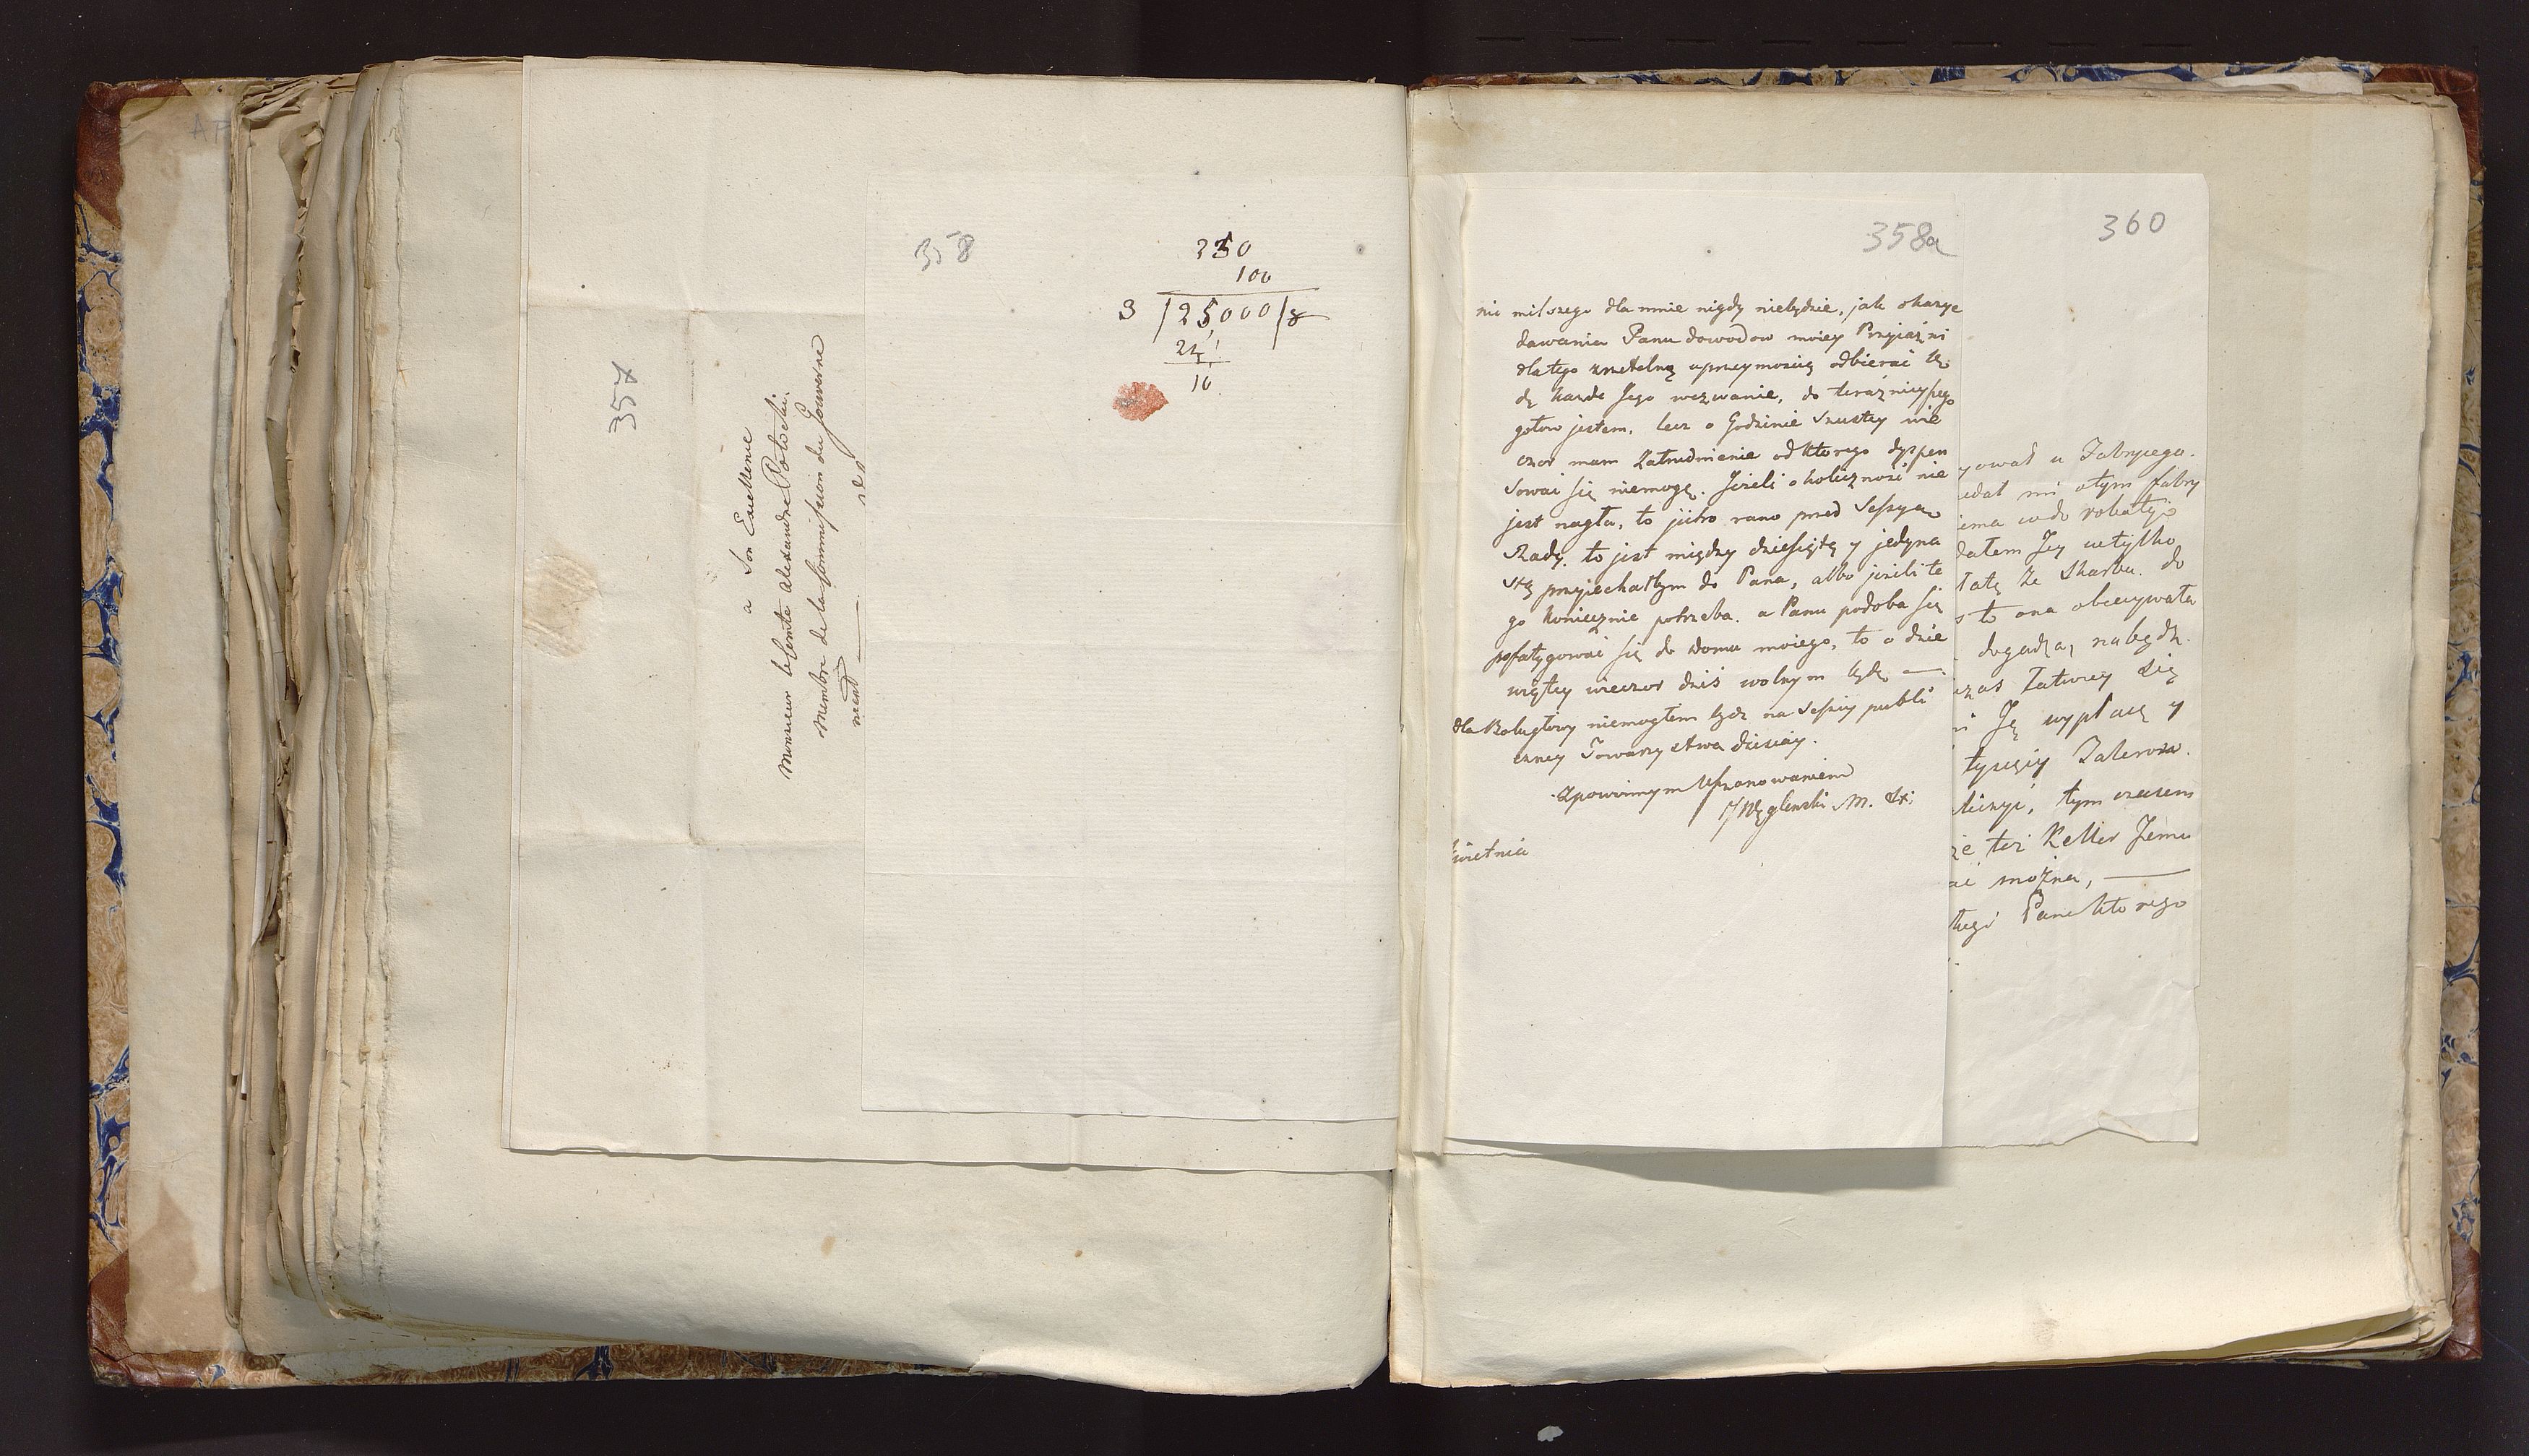 357
a Son Excellence
Monsieur le Comte Alexandre Potocki.
Membre de la Commission du Gouverne
ment
358
250
100
3 25,000 8
24
10
358a
nic milszego dla mnie nigdy niebędzie, jak okazye
dawania Panu dowodow moiey Przyiaźni
dlatego rzetelną uprzeymoscią odbierać bę
dę każde Jego wezwanie, do teraźnieyszego
gotow jestem. lecz o Godzinie Szustey wie
czor mam Zatrudnienie od ktorego dyspen
sować się niemogę. Jeżeli okoliczność nie
jest nagła, to jutro rano przed Sessyą
Rady. to jest między dziesiątą y jedyna
stą przyiechałbym do Pana, albo jeżeli te
go koniecznie potrzeba. a Panu podoba się
pofatygować się do domu moiego, to o dzie
wiątey wieczor dziś wolnym będę —
dla Bolu głowy niemogłem bydz na Sessyi publi
czney Towarzystwa dzisiay.
Z powinnym Uszanowaniem
Węglenski M. Sk:
kwietnia
360
yował u Fabryiego.
edał mi otym fabry
datem Jey
łatę ze Skarbu. do
to ona obiecywała
dogadza, nabędz.
czas Łatwiey się
Ję wypłacę y
tysięcy Talerow.
liczyć, tym czasem
że też Keller Jemu
ać można, —
Pana ktorego